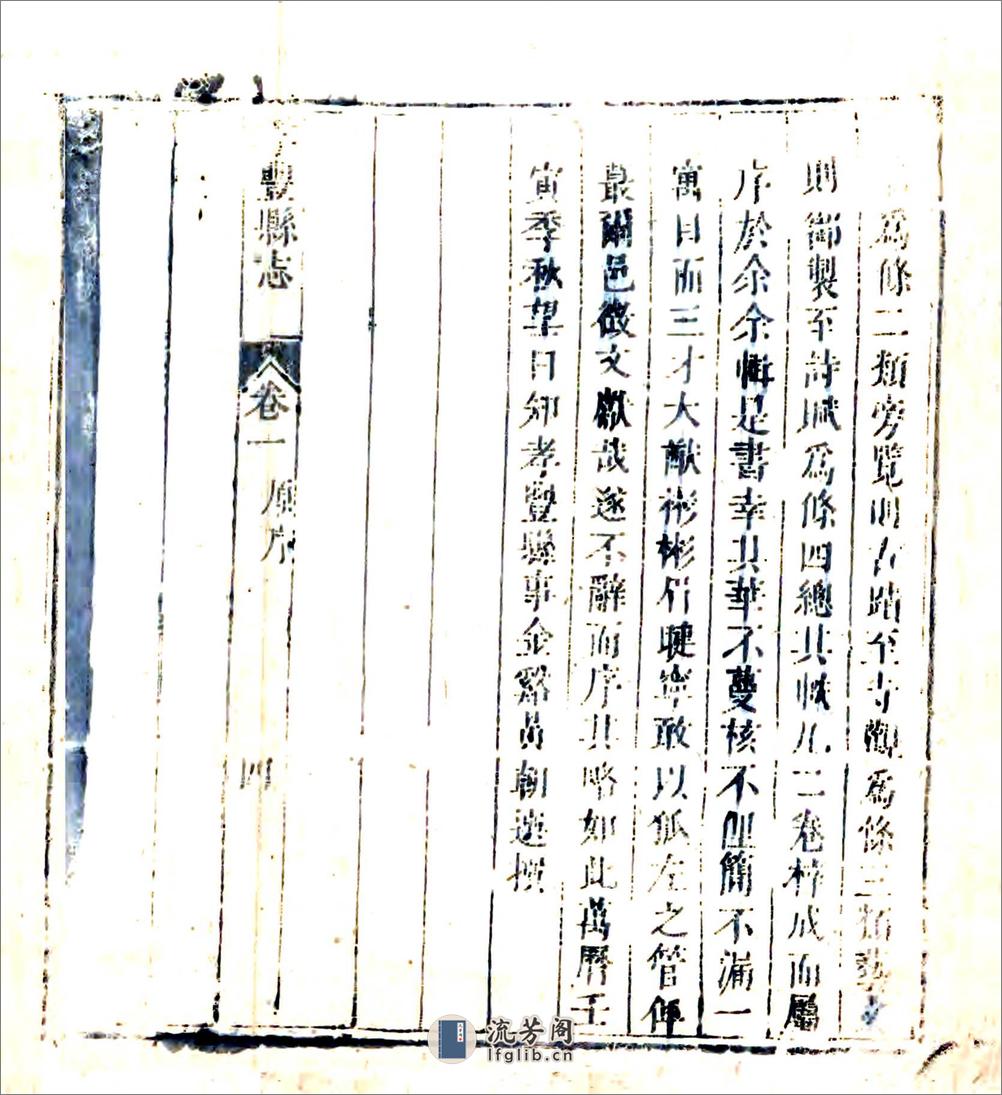 為條二類旁覽則古蹟至寺觀為條三類藝文
則御製至詩賦為條四總其帙凡二卷梓成而屬
序於余余輯是書幸其華不蔓核不俚簡不漏一
寓目而三才大猷彬彬眉睫寧敢以狐左之管俾
蕞爾邑徵文獻哉遂不辭而序其略如此萬曆壬
寅季秋望日知孝豐縣事金谿黃朝選撰
豐縣志 卷一 原序 四
流芳阁
lfglib.cn